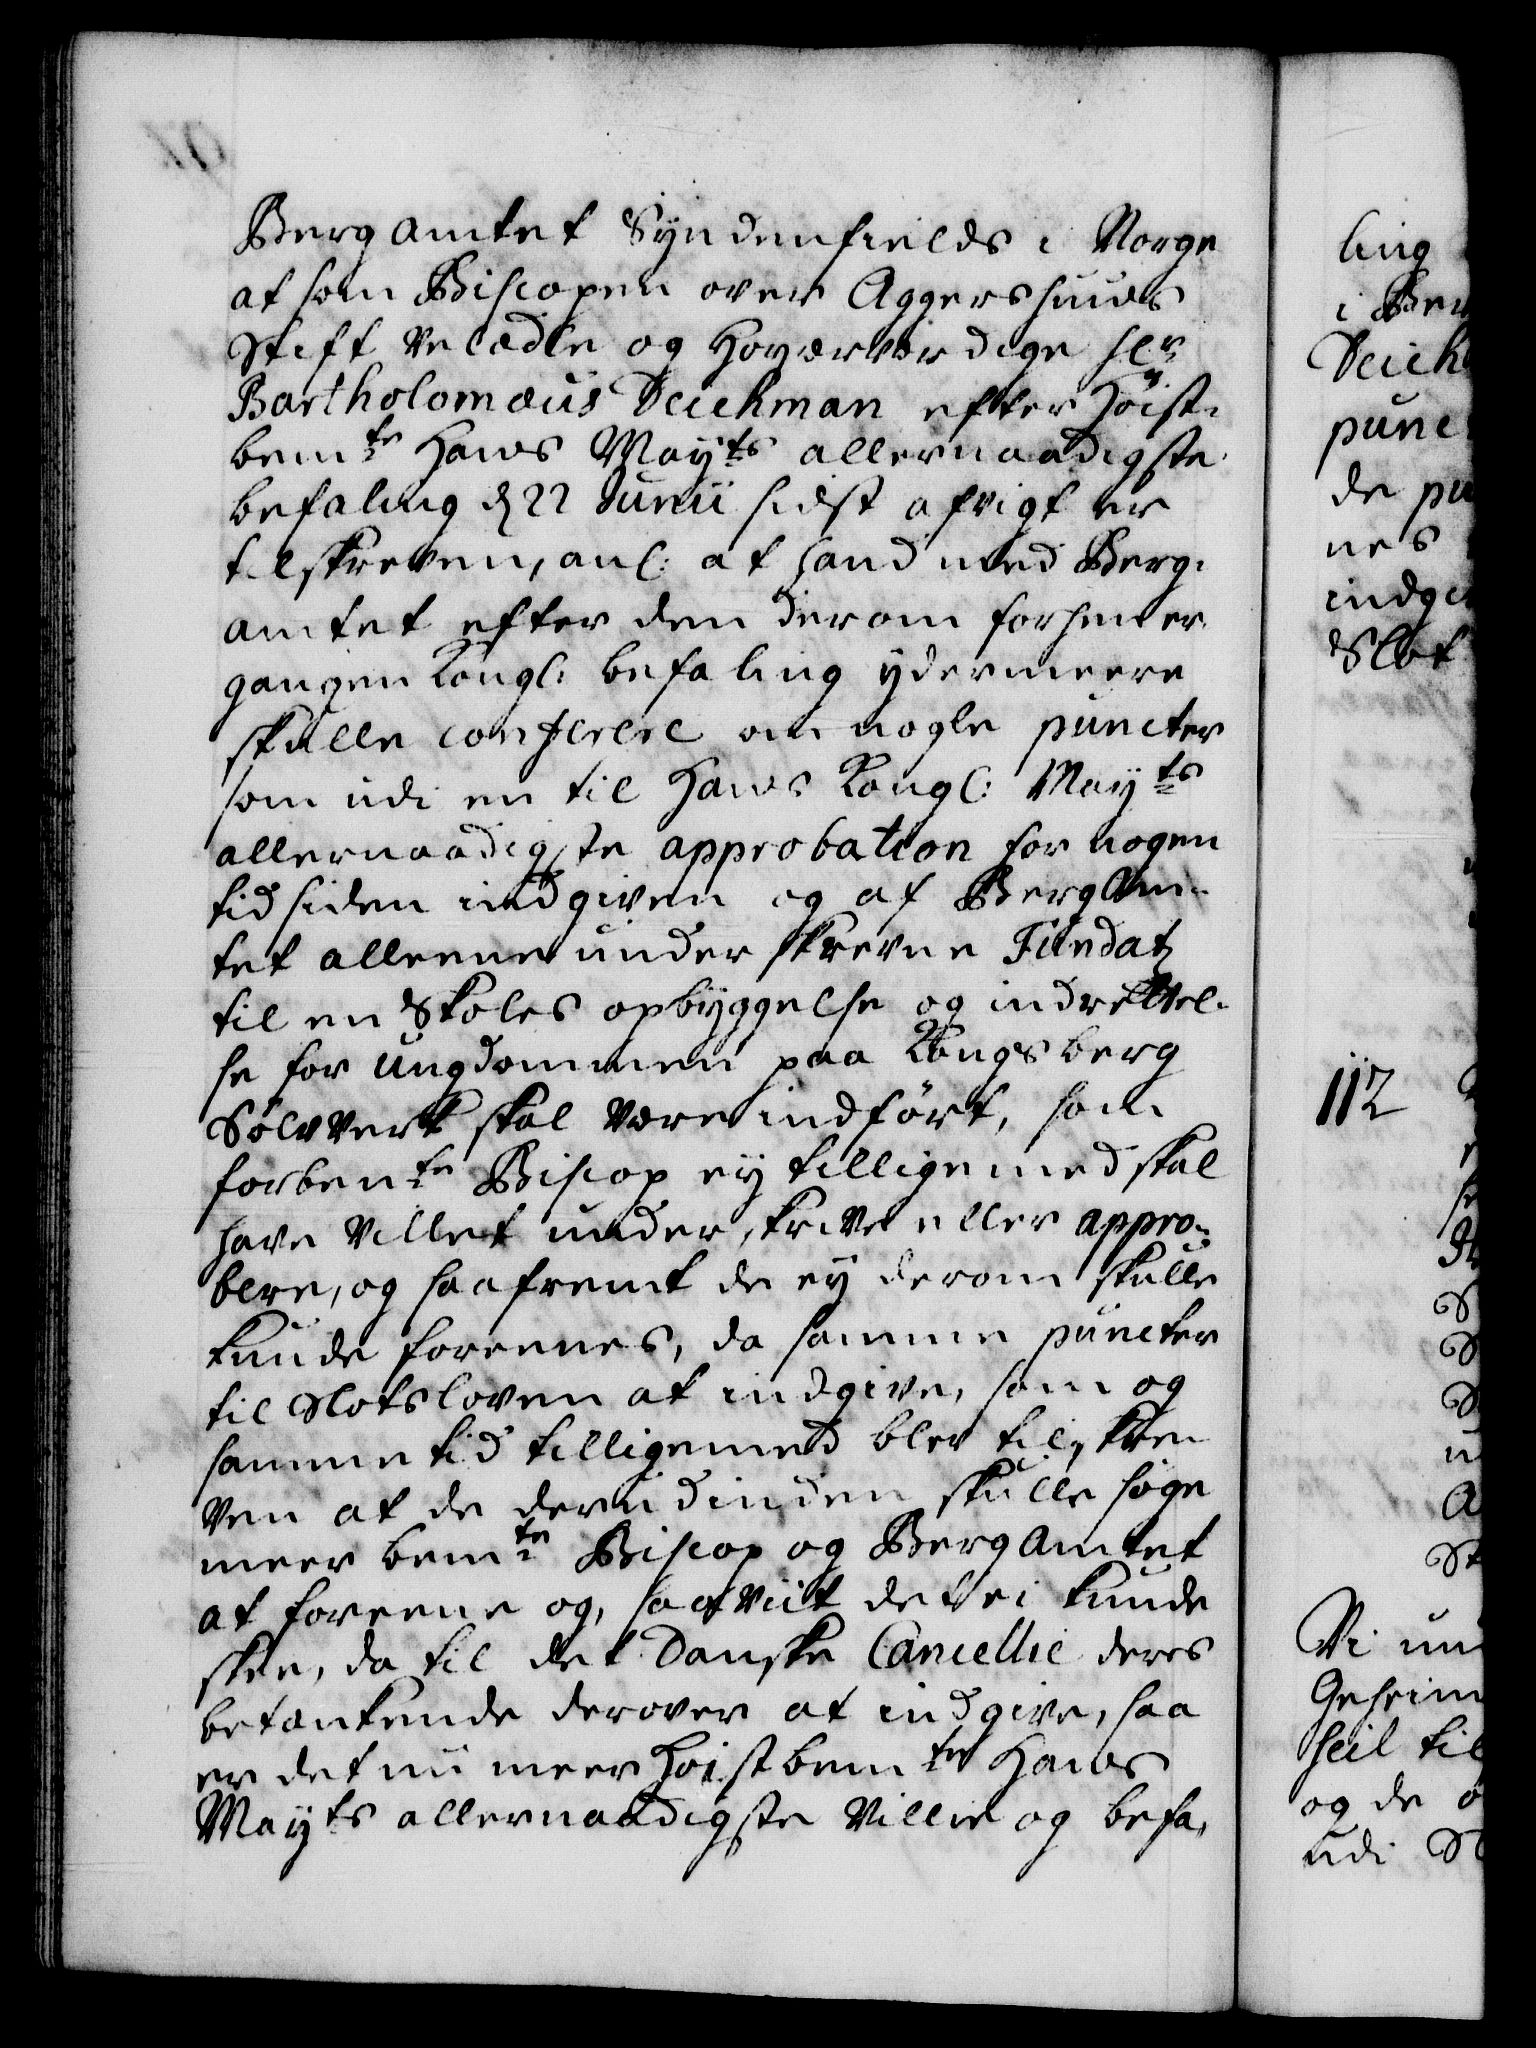 Bergamtet Syndenfields i Norge
at som Biscopen over Aggershuus
Stift Velædle og Høyærværdige Hr
Bartholomæus Deichman efter Høist-
bemte Hans Mayts allernaadigste
befaling d 22 Junii sidst afvigt er
tilskreven, anl: at hand med Berg-
amtet efter den derom forhen er-
gangen Kongl: befaling ydermeere
skulle conferere om nogle puncter
som udi en til Hans Kongl: Mayts
allernaadigste approbation for nogen
tid siden indgiven og af BergAm-
tet alleene underskrevne Fundatz
til en Skoles opbyggelse og indrettel-
se for Ungdommen paa Kongsberg
Sølvverk skal være indført, som
forbemte Biscop ey tilligemed skal
have villet underskrive eller appro-
bere, og saafremt de ey derom skulle
kunde foreenes, da samme puncter
til Slotsloven at indgive, som og
samme tid tilligemed blev tilskre
ven at de derudinden skulle søge
meerbemte Biscop og BergAmtet
at foreene og, saavit det ei kunde
skee, da til det Danske Cancellie deres
betænkende derover at indgive, saa
er det nu meer høistbemte Hans
Mayts allernaadigste Villie og befa-
ling
i Ber
Deich
punc
de pu
nes
indgi
Slot
112
S
S
S
u
A
St
Vi un
Geheim
heil til
og de
udi S